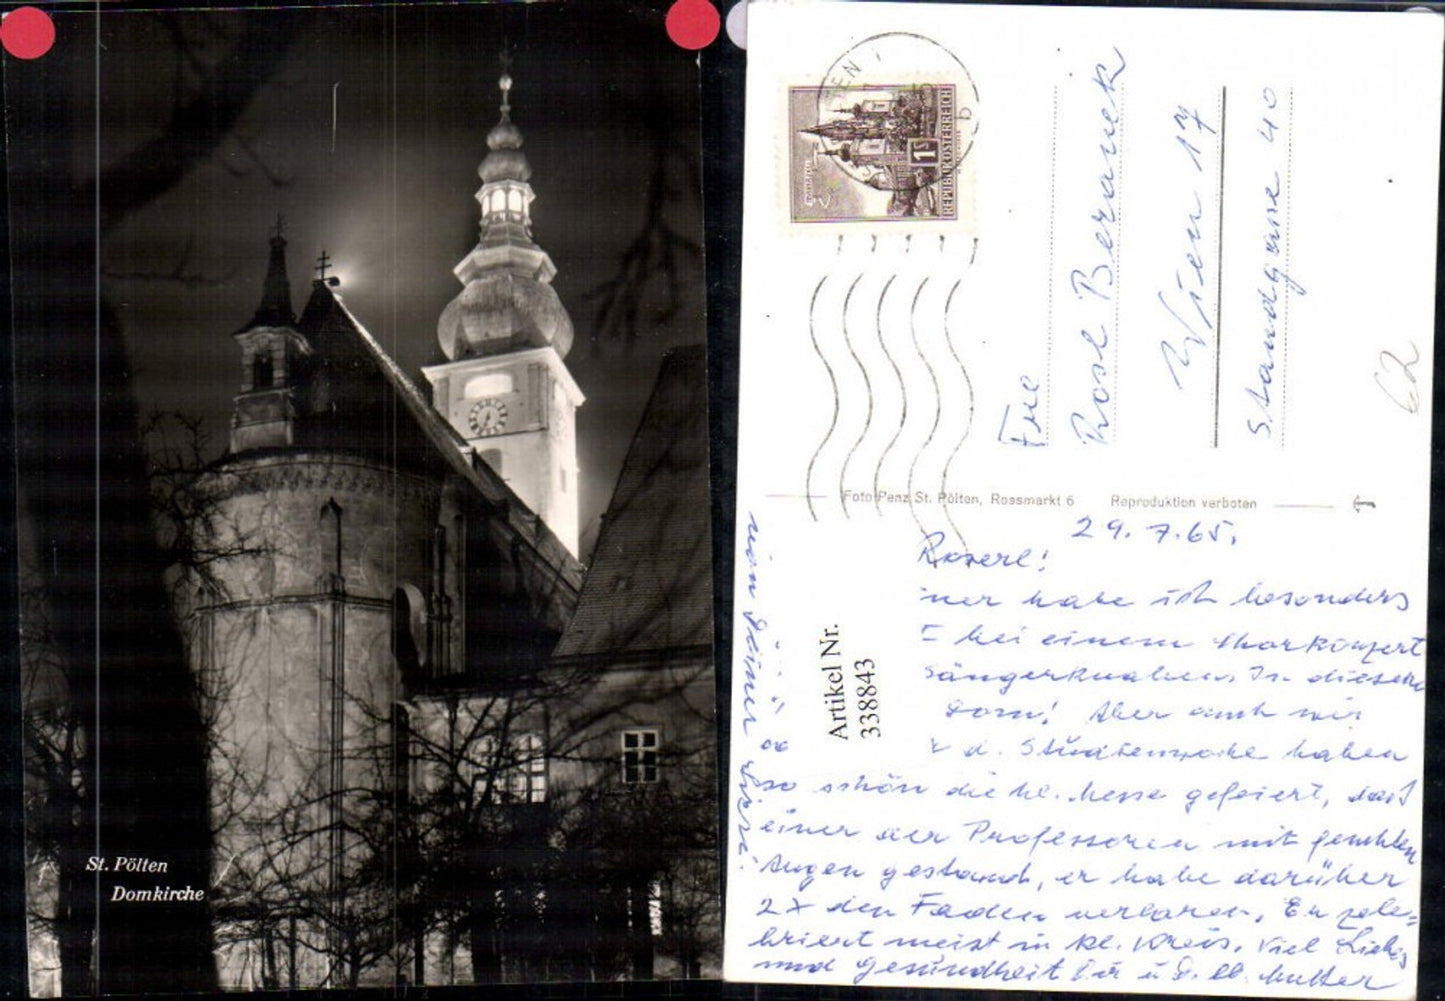 St. Pölten
Domkirche
REPUBLIK ÖSTERREICH
1 S
Frl
Rosl Beranek
Wien 17
Standgasse 40
62
Foto Penz St. Pölten, Rossmarkt 6 Reproduktion verboten
29.7.65.
Roserl!
habe ich besonders
bei einem Chorkonzert
Sängerknaben. In diesem
Dom! Aber auch wir
d. Studienwoche haben
so schön die hl. Messe gefeiert, daß
einer der Professoren mit feuchten
Augen gestand, er habe darüber
2x den Faden verloren. Er zele-
briert meist in kl. Kreis. Viel Liebes
und Gesundheit für u. d. lb. Mutter
von Deiner
Artikel Nr.
338843